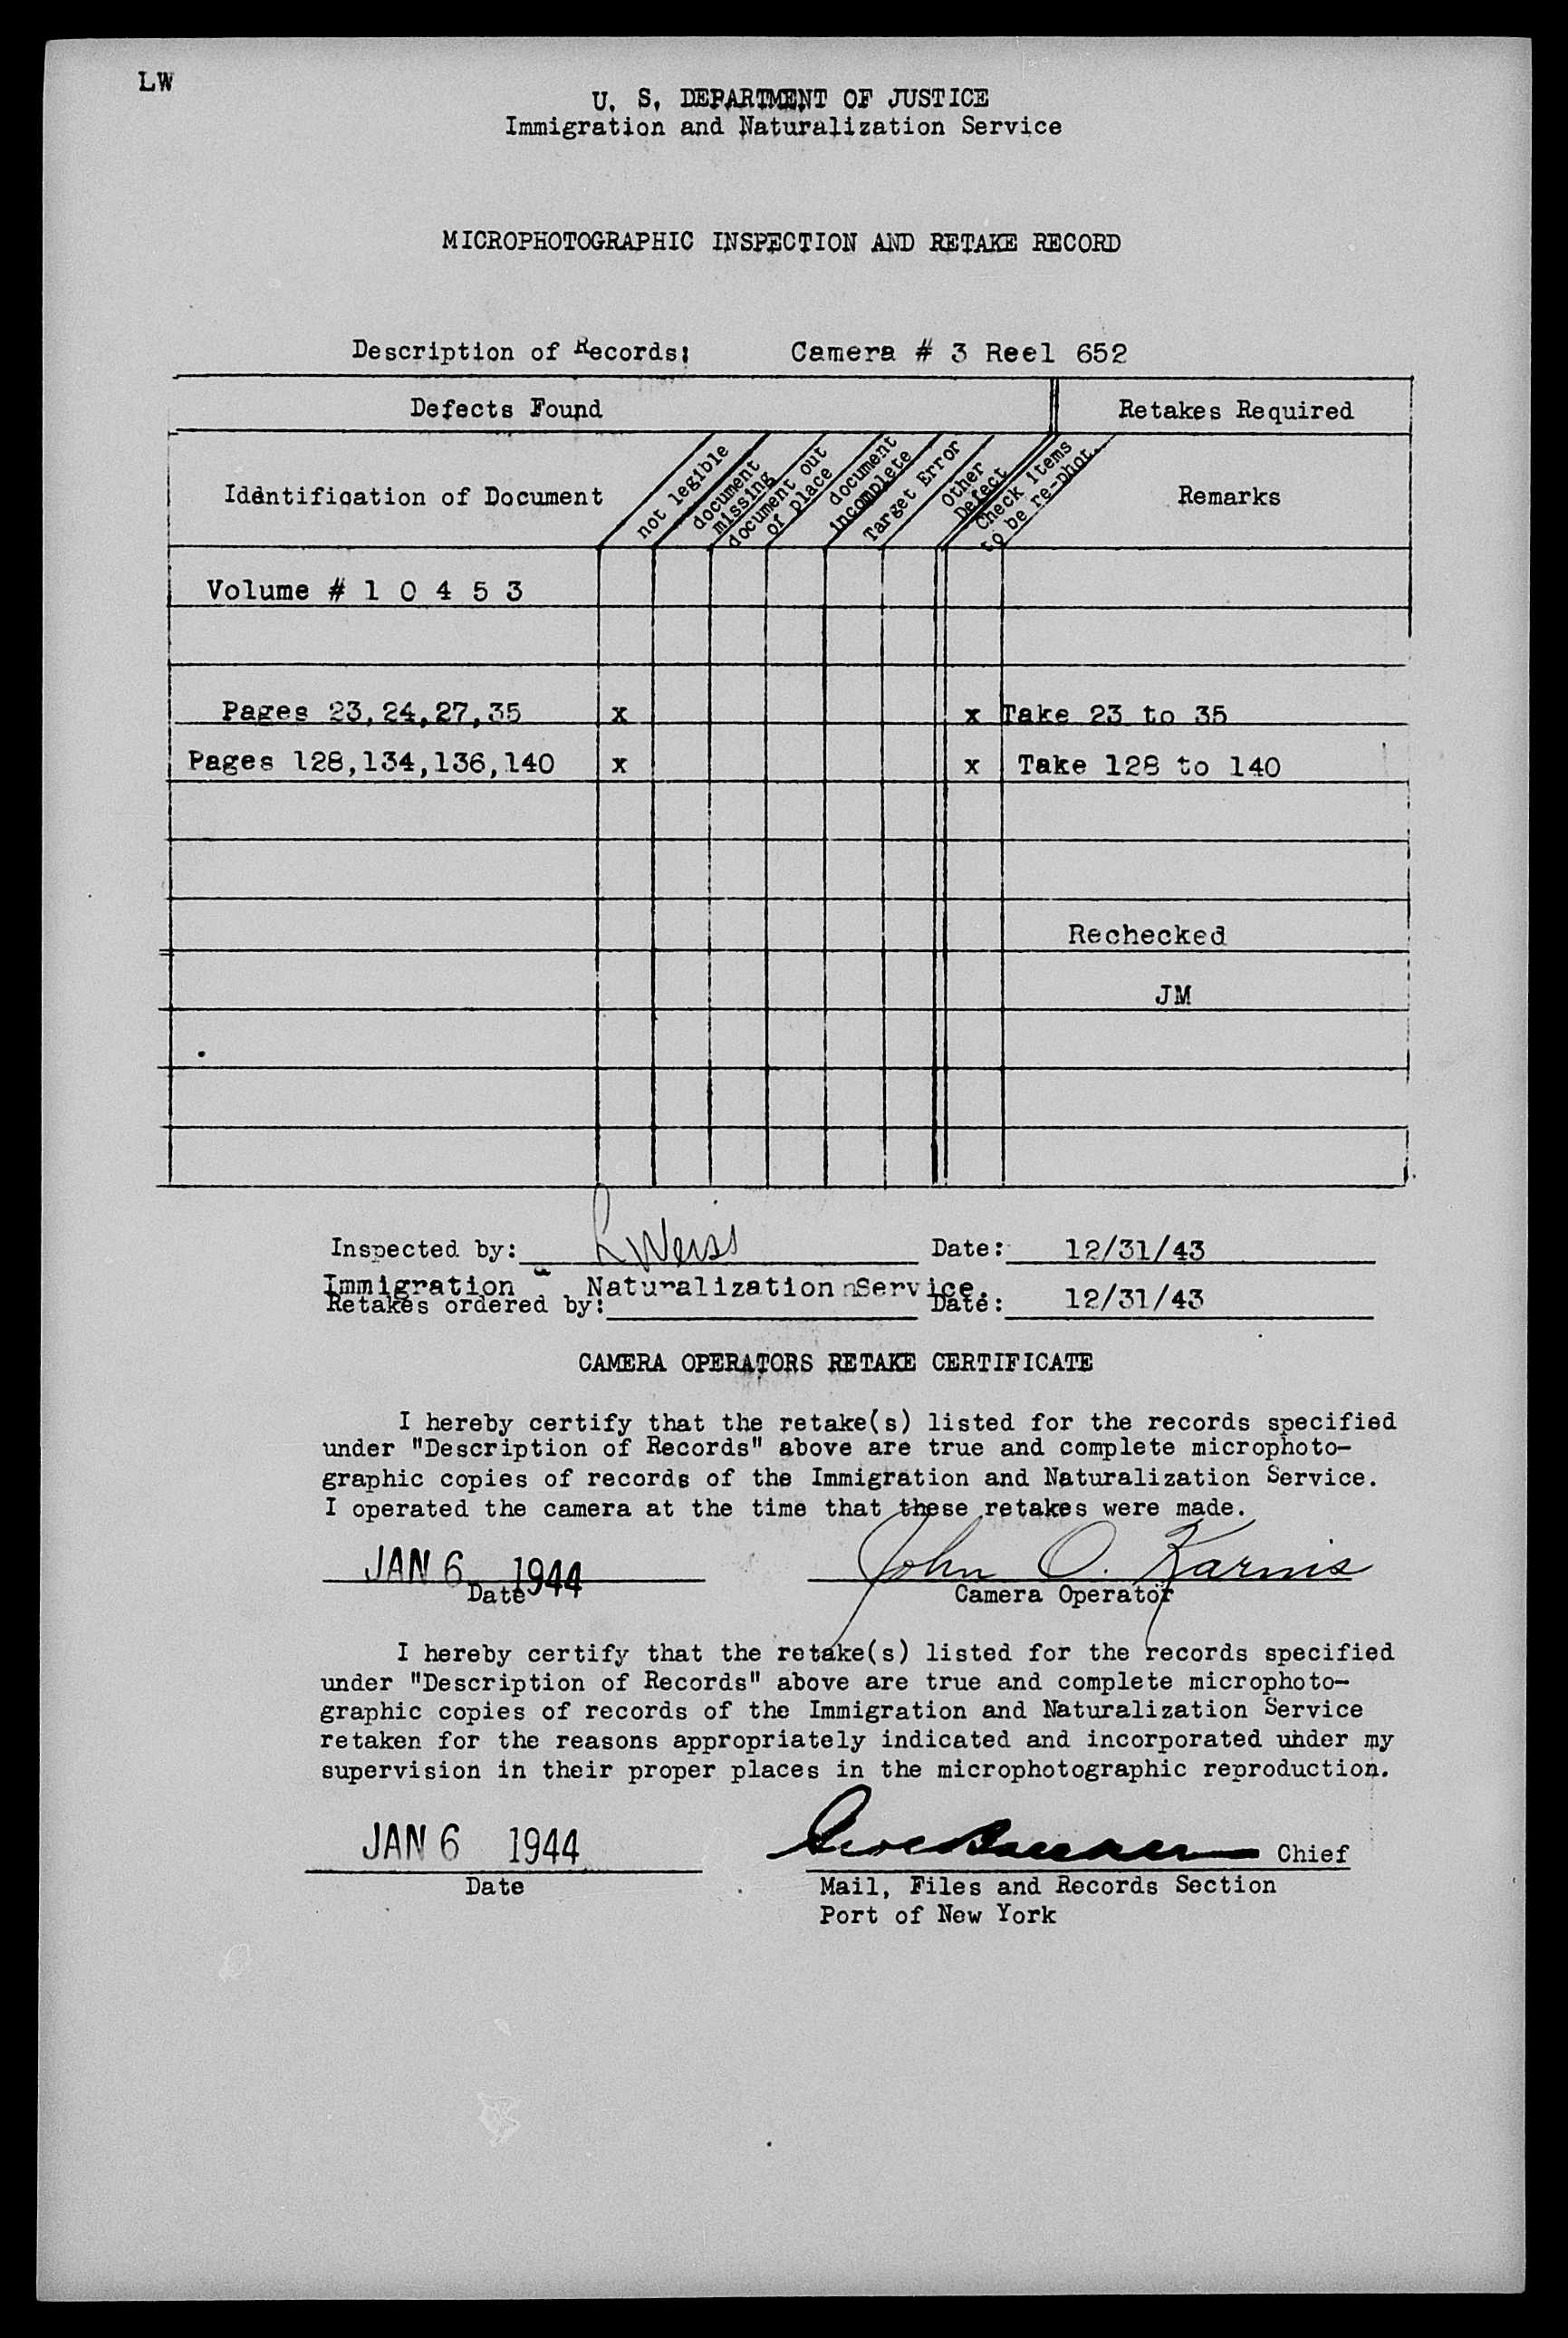 LW
U. S. DEPARTMENT OF JUSTICE
Immigration and Naturalization Service
MICROPHOTOGRAPHIC INSPECTION AND RETAKE RECORD
Description of Records: Camera # 3 Reel 652
Defects Found Retakes Required
Identification of Document
not legible
document missing
document out of place
document incomplete
Target Error
Other Defect
Check items to be re-phot.
Remarks
Volume # 1 0 4 5 3
Pages 23,24,27,35 x x Take 23 to 35
Pages 128,134,136,140 x x Take 128 to 140
Rechecked
JM
Inspected by: L Weiss Date: 12/31/43
Immigration & Naturalization Service.
Retakes ordered by: Date: 12/31/43
CAMERA OPERATORS RETAKE CERTIFICATE
I hereby certify that the retake(s) listed for the records specified
under "Description of Records" above are true and complete microphoto-
graphic copies of records of the Immigration and Naturalization Service.
I operated the camera at the time that these retakes were made.
JAN 6 1944 John O. Karnis
Date Camera Operator
I hereby certify that the retake(s) listed for the records specified
under "Description of Records" above are true and complete microphoto-
graphic copies of records of the Immigration and Naturalization Service
retaken for the reasons appropriately indicated and incorporated under my
supervision in their proper places in the microphotographic reproduction.
JAN 6 1944 Chief
Date Mail, Files and Records Section
Port of New York